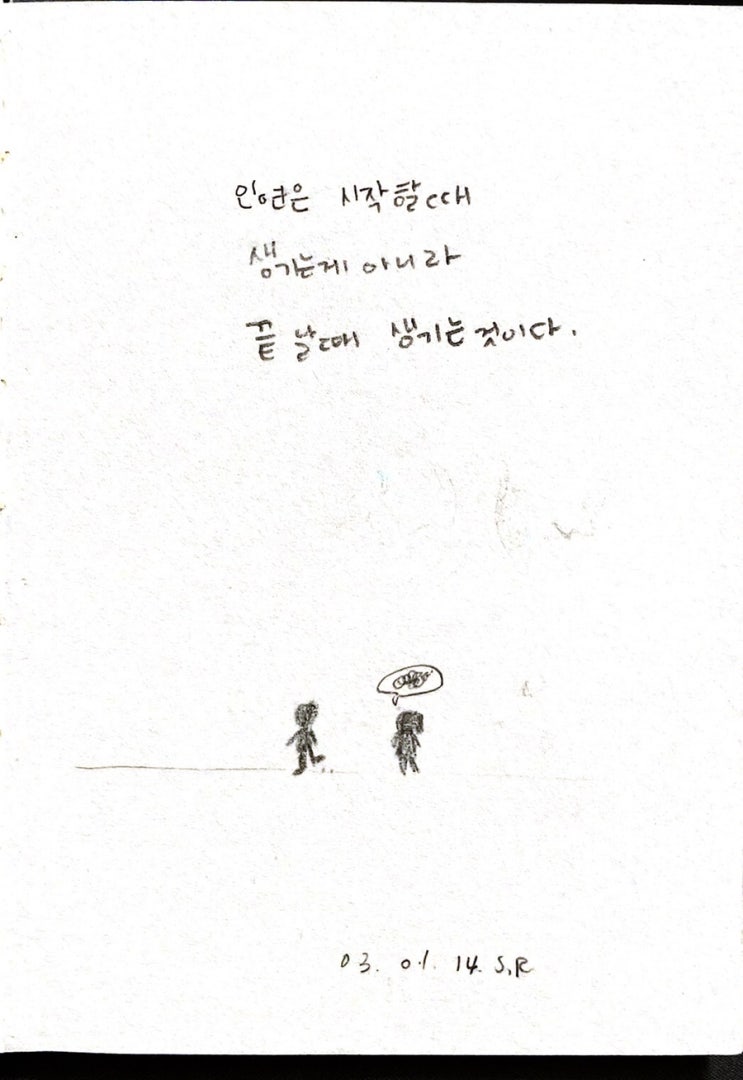 인연은 시작할때
생기는게 아니라
끝날때 생기는 것이다.
03. 01. 14. S.R